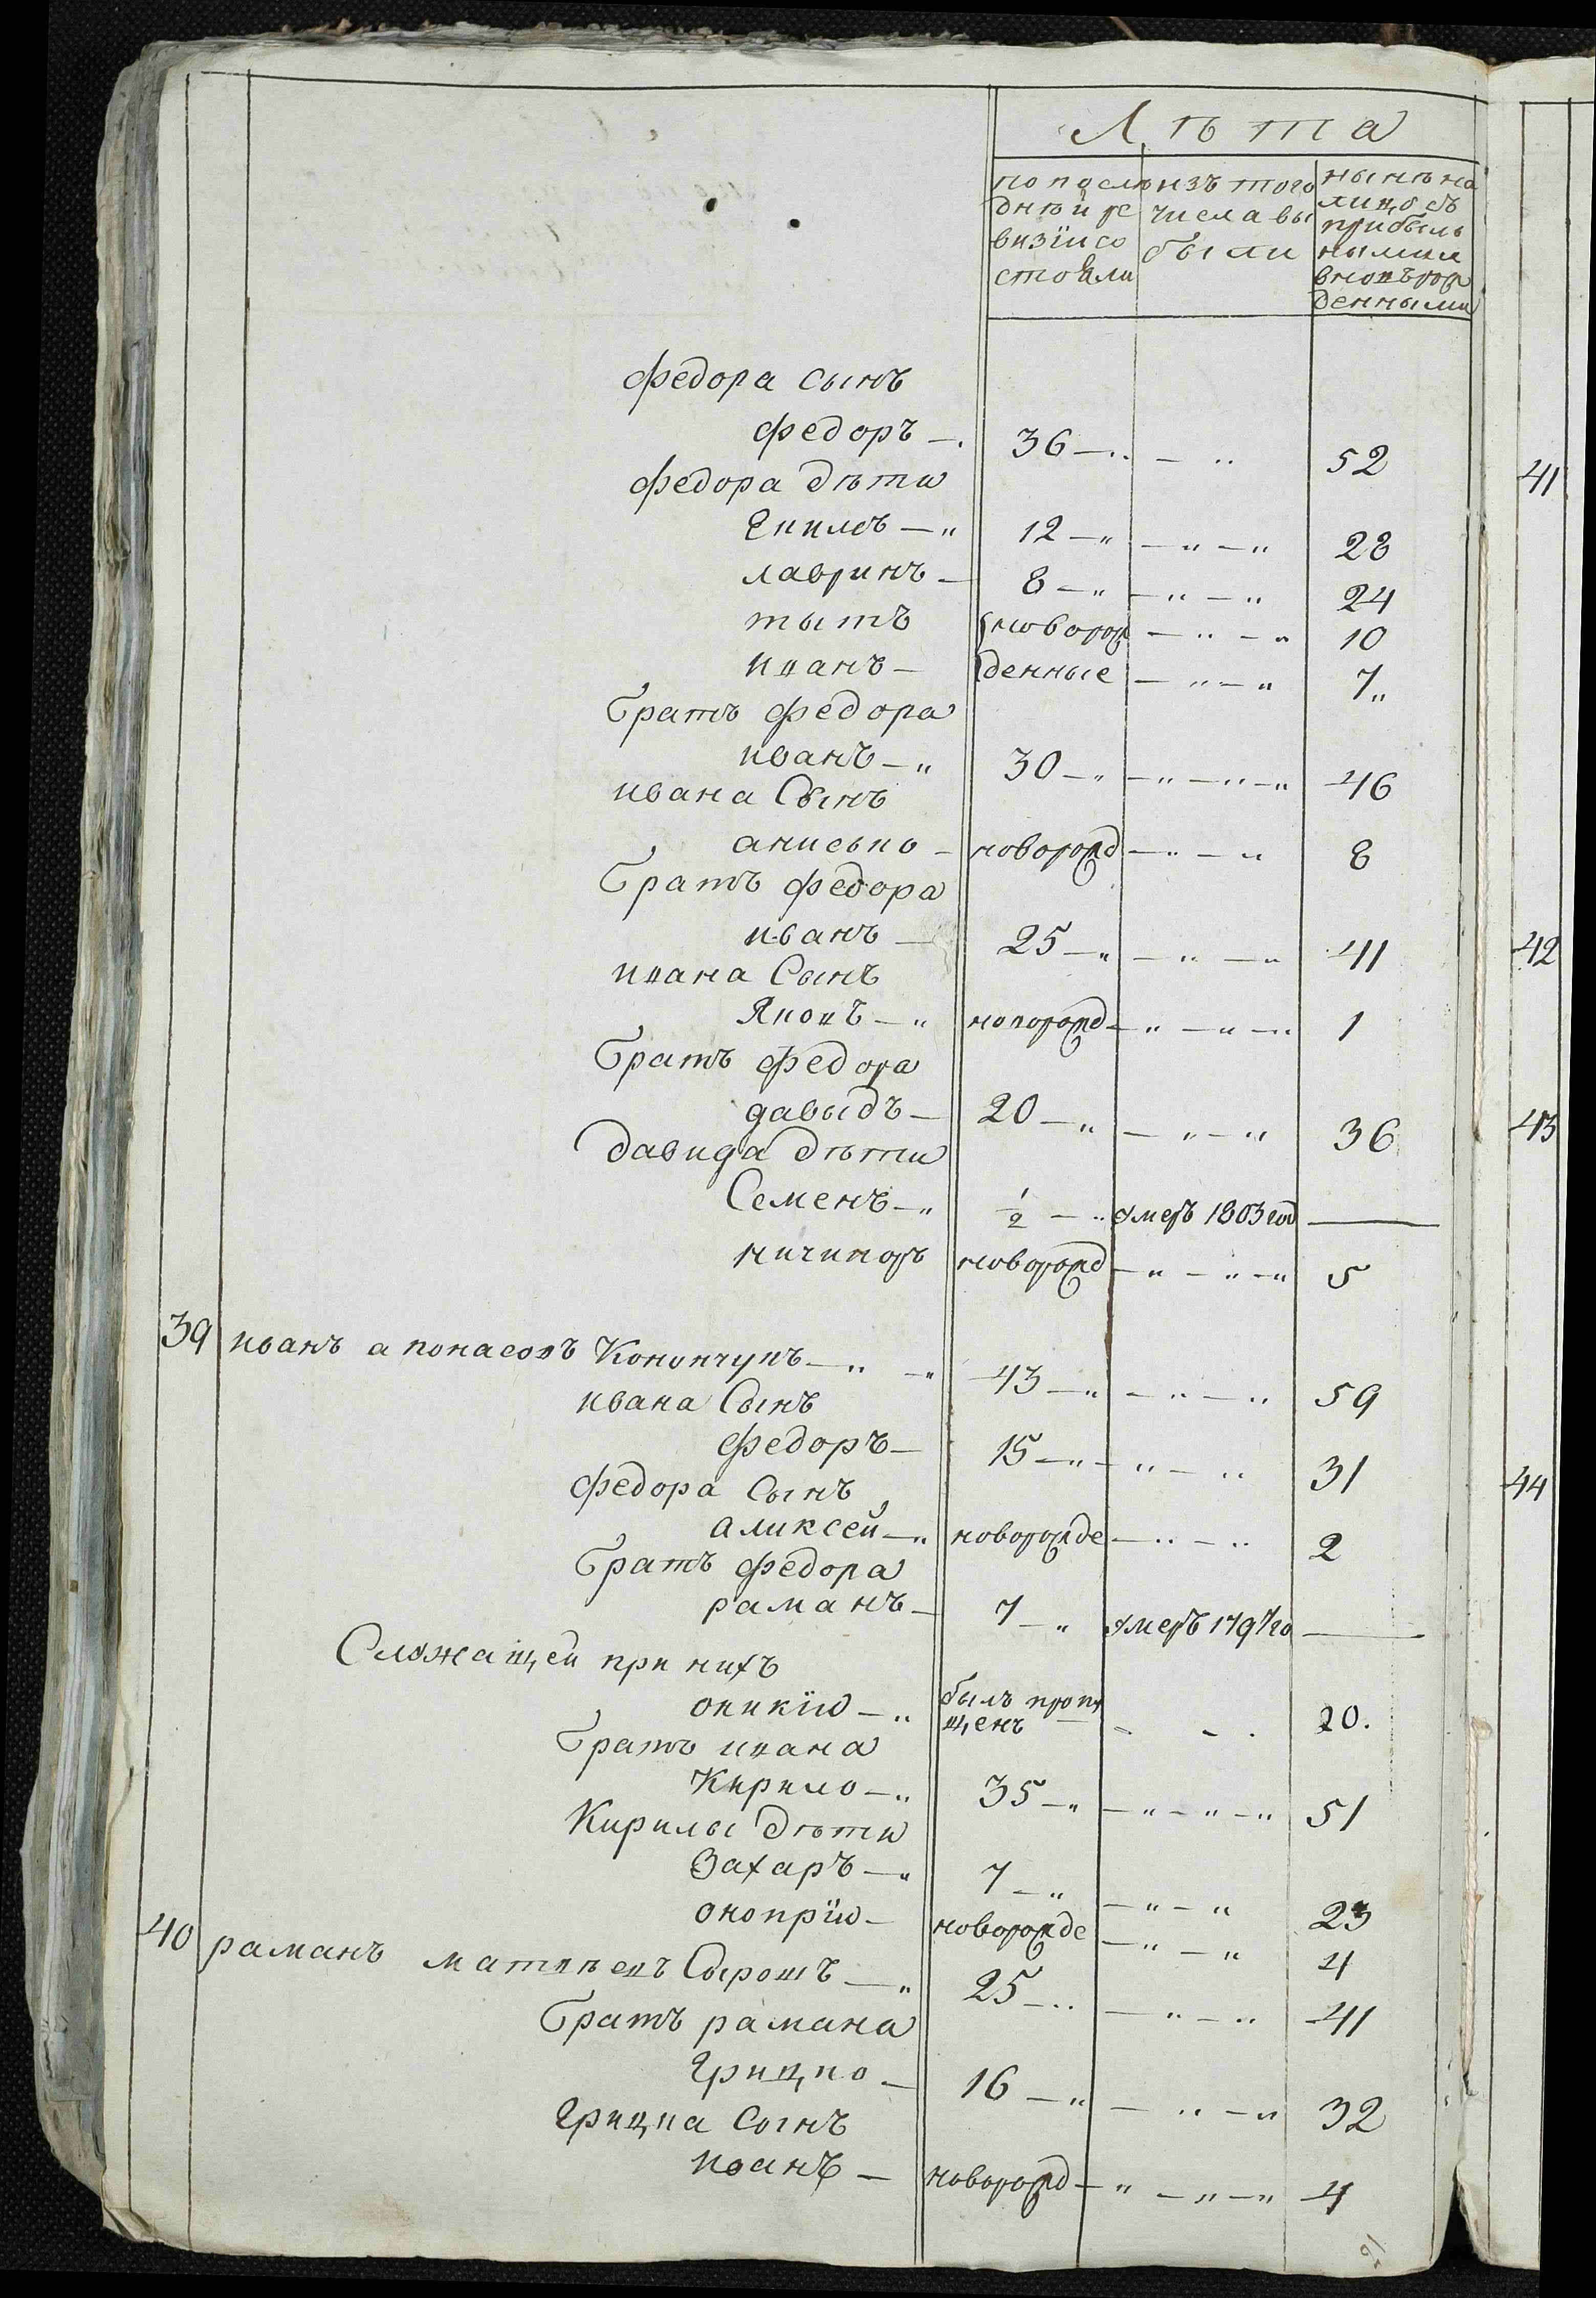 Лѣта
по послѣ дней ре визіи со стояли
изъ того числа вы были
нынѣ на лицо съ прибыль ными и вновъ рож денными
федора сынъ
федоръ — 36 — — 52
федора дѣти
12 — — 28
лавринъ — 8 — — 24
титъ новорож — — 10
иванъ — денные — — 7
братъ федора
иванъ — 30 — — 46
ивана Сынъ
анисько — новорожд — — 8
братъ федора
иванъ — 25 — — 41
ивана Сынъ
Яковъ — новорожд — — 1
братъ федора
давыдъ — 20 — — 36
давида дѣти
Семенъ — 1/2 — умеръ 1803 год —
ничипоръ новорожд — — 5
39 иванъ апонасовъ Конончукъ — 43 — — 59
ивана Сынъ
федоръ — 15 — — 31
федора Сынъ
аликсей — новорожде — — 2
братъ федора
раманъ — 7 — умеръ 1797 го —
Служащей при нихъ
оникію — былъ пропу щенъ — — 20.
братъ ивана
Кирило — 35 — — 51
Кирилы дѣти
Захаръ — 7 — — 23
онопрію — новорожде — — 4
40 раманъ матвѣевъ Сырошъ — 25 — — 41
братъ рамана
грицко — 16 — — 32
грицка Сынъ
иванъ — новорожд — — 4
41
42
43
44